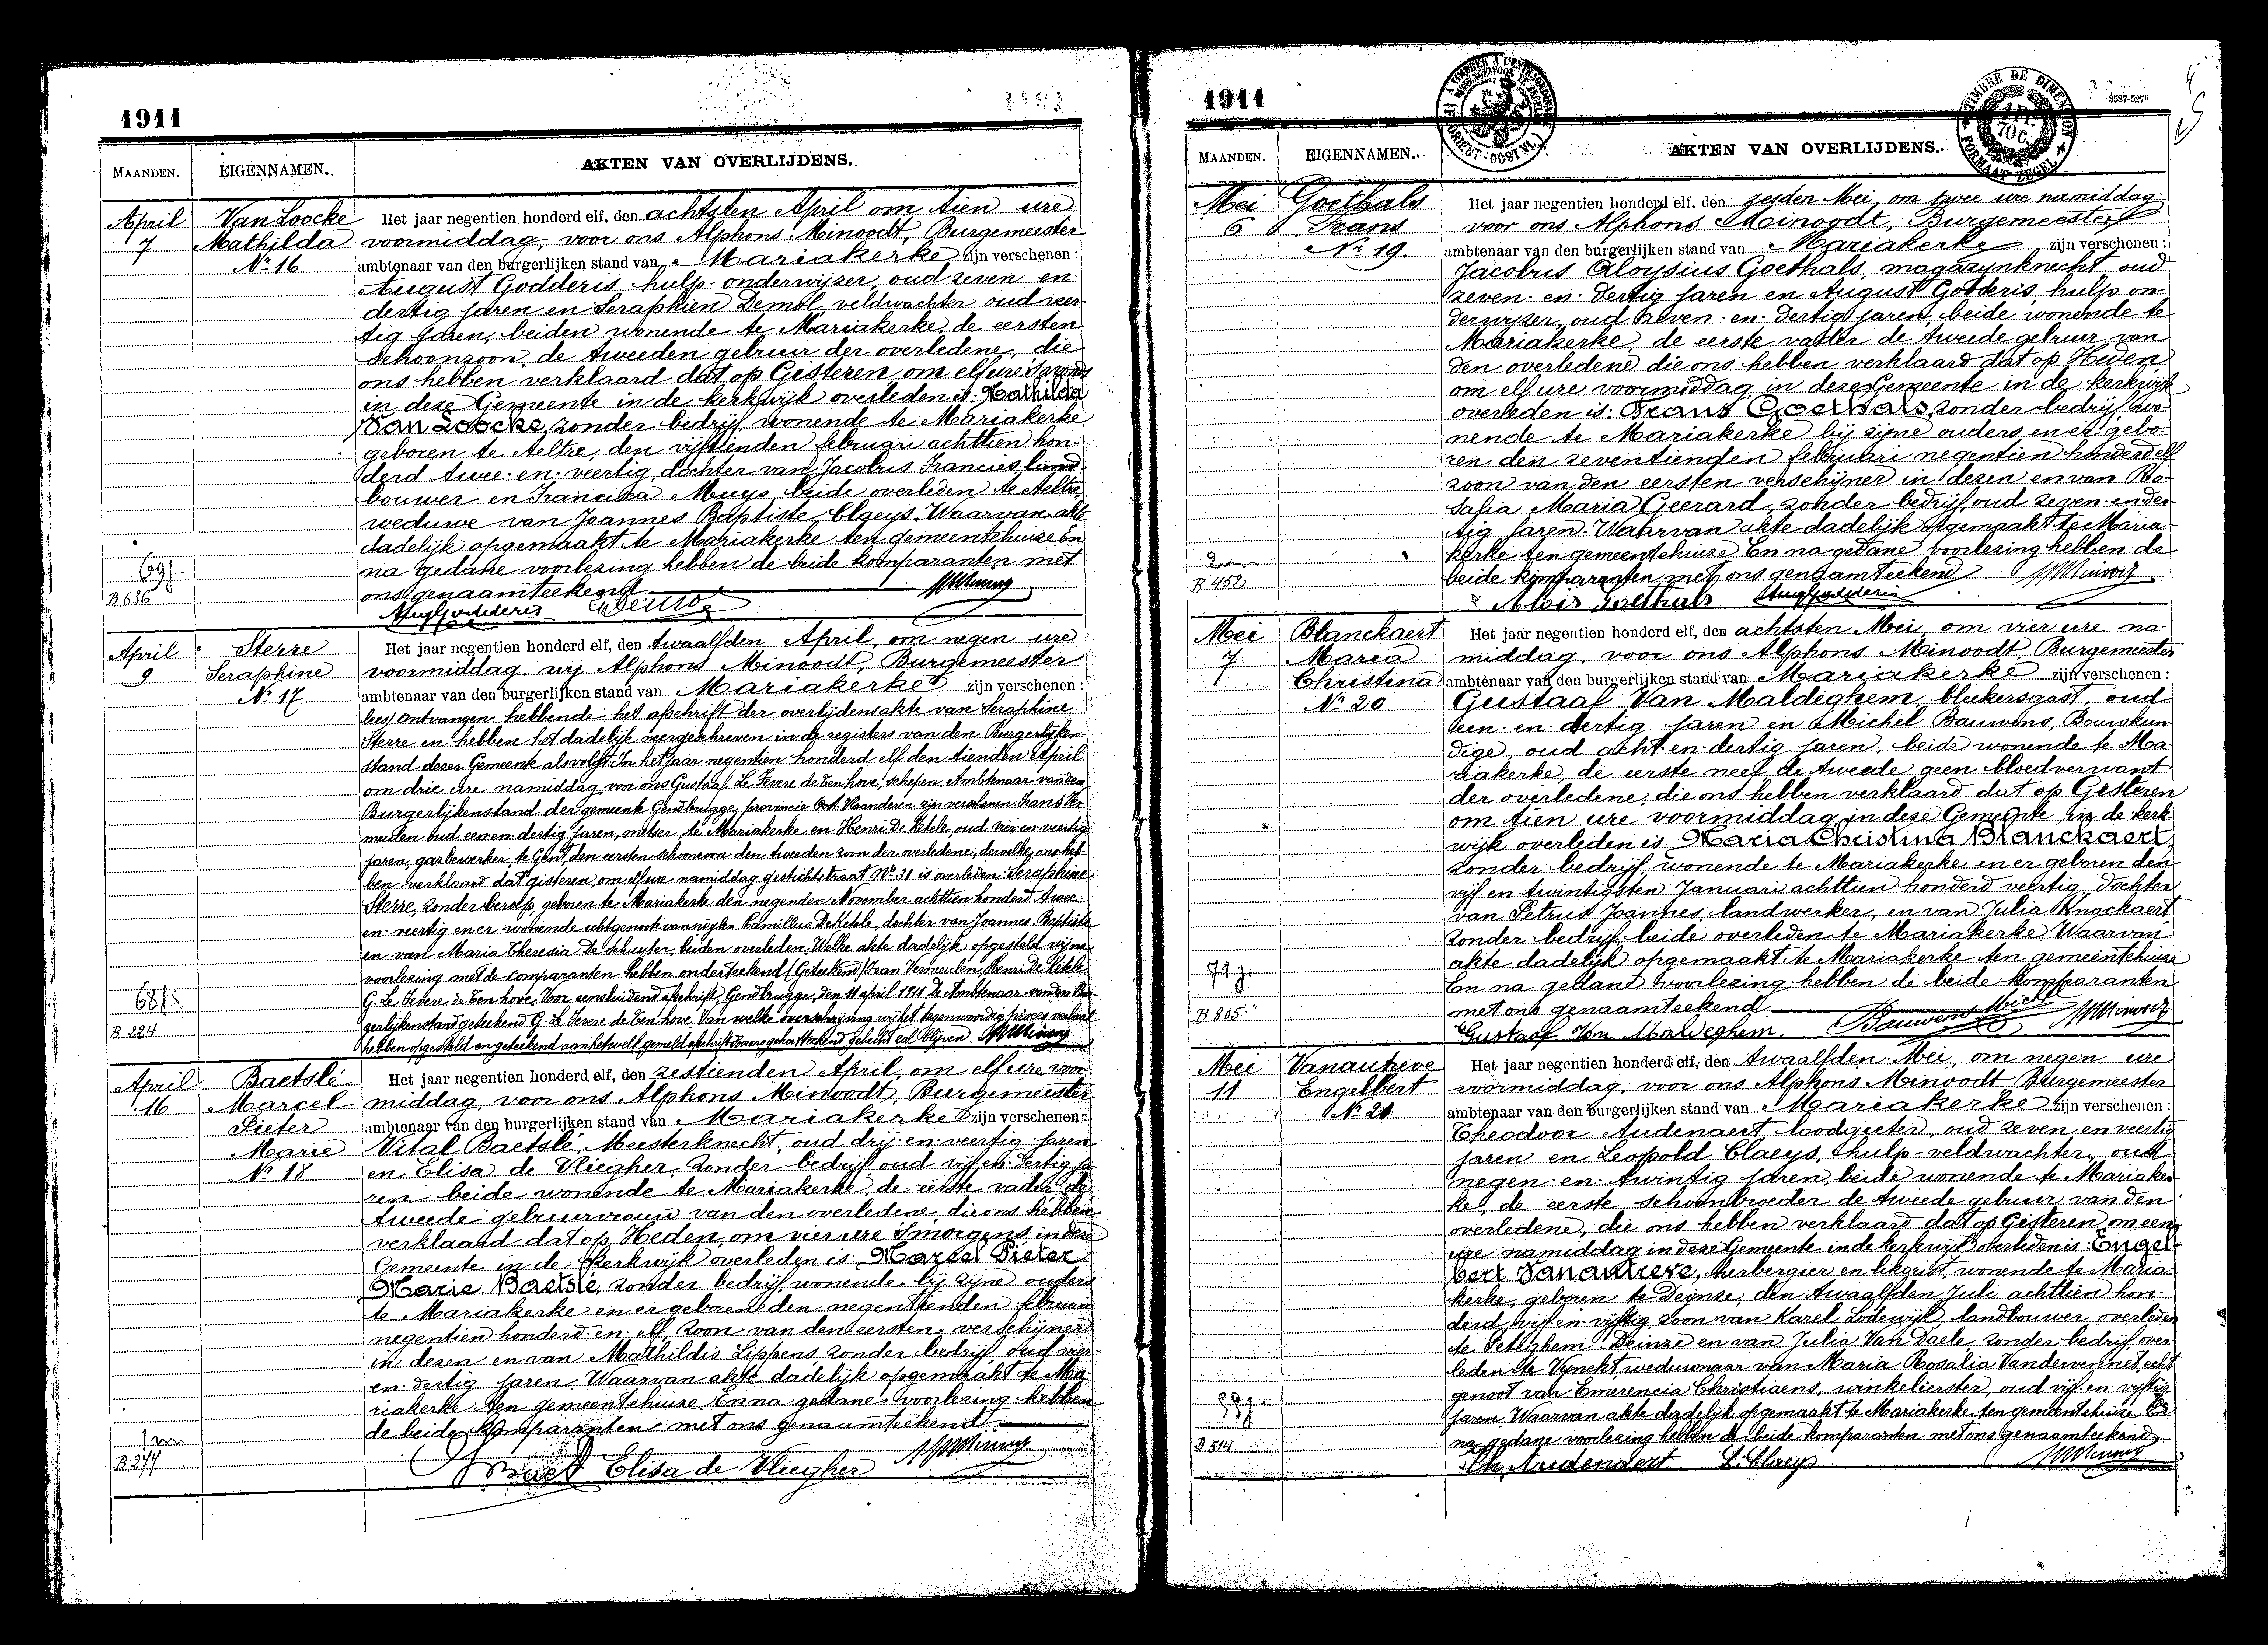 1911
MAANDEN.
EIGENNAMEN.
AKTEN VAN OVERLIJDENS.
April
7
Van Loocke
Mathilda
No 16
Het jaar negentien honderd elf, den achtsten April om tien ure
voormiddag, voor ons Alphons Minoodt, Burgemeester
ambtenaar van den burgerlijken stand van Mariakerke zijn verschenen:
August Godderis hulp-onderwijzer, oud zeven en
dertig jaren en Seraphien Demol veldwachter oud veer-
tig jaren, beiden wonende te Mariakerke, de eersten
schoonzoon, de tweeden gebuur der overledene, die
ons hebben verklaard dat op Gisteren om elf ure 's avonds
in deze Gemeente in de kerkwijk overleden is: Mathilda
Van Loocke, zonder bedrijf, wonende te Mariakerke
geboren te Aeltre, den vijftienden februari achttien hon-
derd twee-en-veertig, dochter van Jacobus Francies, land-
bouwer en Francisca Muys, beide overleden te Aeltre,
weduwe van Joannes Baptiste Claeys. Waarvan akte
dadelijk opgemaakt te Mariakerke ten gemeentehuize En
na gedane voorlezing hebben de beide komparanten met
ons genaamteekend
69j.
B 636
Aug Godderis
April
9
Sterre
Seraphine
No 17
Het jaar negentien honderd elf, den twaalfden April, om negen ure
voormiddag wij Alphons Minoodt, Burgemeester
ambtenaar van den burgerlijken stand van Mariakerke zijn verschenen:
lees/ ontvangen hebbende het afschrift der overlijdensakte van Seraphine
Sterre en hebben het dadelijk neergeschreven in de registers van den Burgerlijken-
stand dezer Gemeente als volgt: In het jaar negentien honderd elf den tienden April
om drie ure namiddag, voor ons Gustaaf Le Fevere de Ten hove, schepen, Ambtenaar van den
Burgerlijkenstand der gemeente Gendbrugge, provincie Oost Vlaanderen zijn verschenen Frans Ver-
meulen oud een en dertig jaren, te Mariakerke en Henri De Ketele, oud vier en veertig
jaren, gazbewerker, te Gent, den eersten schoonzoon den tweeden zoon der overledene, dewelke ons heb-
ben verklaard dat gisteren, om elf ure namiddag gestichtstraat No 31 is overleden: Seraphine
Sterre, zonder beroep, geboren te Mariakerke den negenden November achttien honderd twee-
en veertig en er wonende echtgenoote van wijlen Camillus De Ketele, dochter van Joannes Baptiste
en van Maria Theresia De Schuyter, beiden overleden. Welke akte dadelijk opgesteld wij na
voorlezing met de comparanten hebben onderteekend (Geteekend) Fran Vermeulen, Henri De Ketele
G. Le Fevere de Ten hove. Voor eensluidend afschrift, Gendbrugge, den 11 april 1911 De Ambtenaar van den Bur-
gerlijkenstand geteekend G. Le Fevere de Ten hove. Van welke overschrijving wij het tegenwoordig proces verbaal
hebben opgesteld en geteekend aan hetwelk gemeld afschrift gehecht zal blijven.
68j.
B 224
April
16
Baetslé
Marcel
Pieter
Marie
No 18
Het jaar negentien honderd elf, den zestienden April, om elf ure voor-
middag, voor ons Alphons Minoodt, Burgemeester
ambtenaar van den burgerlijken stand van Mariakerke zijn verschenen:
Vital Baetslé, Meesterknecht, oud drij-en-veertig jaren
en Elisa de Vliegher, zonder bedrijf oud vijf-en-dertig ja-
ren beide wonende te Mariakerke, de eerste vader de
tweede gebuurvrouw van den overledene, die ons hebben
verklaard dat op Heden om vier ure Smorgens in deze
Gemeente in de kerkwijk overleden is: Marcel Pieter
Marie Baetslé, zonder bedrijf wonende bij zijne ouders
te Mariakerke en er geboren den negentienden februari
negentien honderd en elf, zoon van den eersten verschijner
in dezen en van Mathildis Lippens zonder bedrijf oud vier-
en-dertig jaren. Waarvan akte dadelijk opgemaakt te Ma-
riakerke ten gemeentehuize En na gedane voorlezing hebben
de beide komparanten met ons genaamteekend
B 277
Elisa de Vliegher
1911
3587-5275
TIMBRE DE DIMENSION
FORMAAT ZEGEL
MAANDEN.
EIGENNAMEN.
AKTEN VAN OVERLIJDENS.
Mei
6
Goethals
Frans
No 19.
Het jaar negentien honderd elf, den zesden Mei, om twee ure namiddag
voor ons Alphons Minoodt, Burgemeester
ambtenaar van den burgerlijken stand van Mariakerke zijn verschenen:
Jacobus Aloysius Goethals, magazynknecht oud
zeven-en-dertig jaren en August Godderis, hulp-on-
derwyzer, oud zeven-en-dertig jaren, beide wonende te
Mariakerke, de eerste vader de tweede gebuur van
den overledene die ons hebben verklaard dat op Heden
om elf ure voormiddag in deze Gemeente in de kerkwijk
overleden is: Frans Goethals, zonder bedrijf, wo-
nende te Mariakerke bij zijne ouders en er gebo-
ren den zeventienden februari negentien honderd elf
zoon van den eersten verschijner in dezen en van Ro-
safia Maria Geerard, zonder bedrijf, oud zeven-en-der-
tig jaren. Waarvan akte dadelijk opgemaakt te Maria-
kerke ten gemeentehuize En na gedane voorlezing hebben de
beide komparanten met ons genaamteekend
B 452
Alois Goethals Aug Godderis
Mei
7
Blanckaert
Maria
Christina
No 20
Het jaar negentien honderd elf, den achtsten Mei, om vier ure na-
middag, voor ons Alphons Minoodt, Burgemeester
ambtenaar van den burgerlijken stand van Mariakerke zijn verschenen:
Gustaaf Van Maldeghem, bleekersgast, oud
een-en-dertig jaren en Michel Bauwens, Bouwkun-
dige, oud acht-en-dertig jaren, beide wonende te Ma-
riakerke, de eerste neef de tweede geen bloedverwant
der overledene, die ons hebben verklaard dat op Gisteren
om tien ure voormiddag in deze Gemeente in de kerk-
wijk overleden is Maria Christina Blanckaert,
zonder bedrijf, wonende te Mariakerke en er geboren den
vijf en twintigsten Januari achttien honderd veertig, dochter
van Petrus Joannes, landwerker, en van Julia Knockaert
zonder bedrijf, beide overleden te Mariakerke Waarvan
akte dadelijk opgemaakt te Mariakerke ten gemeentehuize
En na gedane voorlezing hebben de beide komparanten
met ons genaamteekend
71j.
B 805
Gustaaf Van Maldeghem Bauwens Michel
Mei
11
Vanautreve
Engelbert
No 21
Het jaar negentien honderd elf, den twaalfden Mei, om negen ure
voormiddag, voor ons Alphons Minoodt Burgemeester
ambtenaar van den burgerlijken stand van Mariakerke zijn verschenen:
Theodoor Audenaert loodgieter, oud zeven en veertig
jaren en Leopold Claeys, hulp-veldwachter, oud
negen-en-twintig jaren, beide wonende te Mariaker-
ke, de eerste schoonbroeder de tweede gebuur van den
overledene, die ons hebben verklaard dat op Gisteren om een
ure namiddag in deze Gemeente in de kerkwijk overleden is: Engel-
bert Vanautreve, herbergier en likorist wonende te Maria-
kerke, geboren te Deynze, den twaalfden Juli achttien hon-
derd vijf-en-vijftig, zoon van Karel Lodewijk, landbouwer overleden
te Peteghem-Deinze en van Julia Van Daele zonder bedrijf over-
leden te Vynckt, weduwnaar van Maria Rosalia Vandevennet, echt-
genoot van Emerencia Christiaens, winkelierster, oud vijf en vijftig
jaren. Waarvan akte dadelijk opgemaakt te Mariakerke ten gemeentehuize En
na gedane voorlezing hebben de beide komparanten met ons genaamteekend
B 514
Th. Audenaert L. Claeys